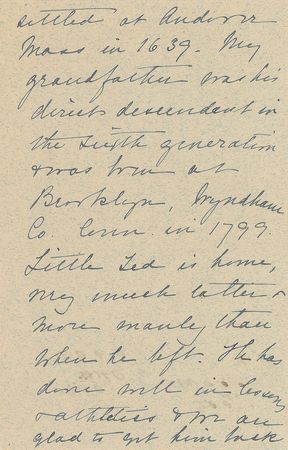 settled at Andover
Mass in 1639. My
grandfather was his
direct descendant in
the sixth generation
& was born at
Brooklyn, Wyndham
Co. Conn. in 1799.
Little Ted is home,
very much fatter &
more manly, than
when he left. He has
done well in lessons
& athletics & we are
glad to get him back